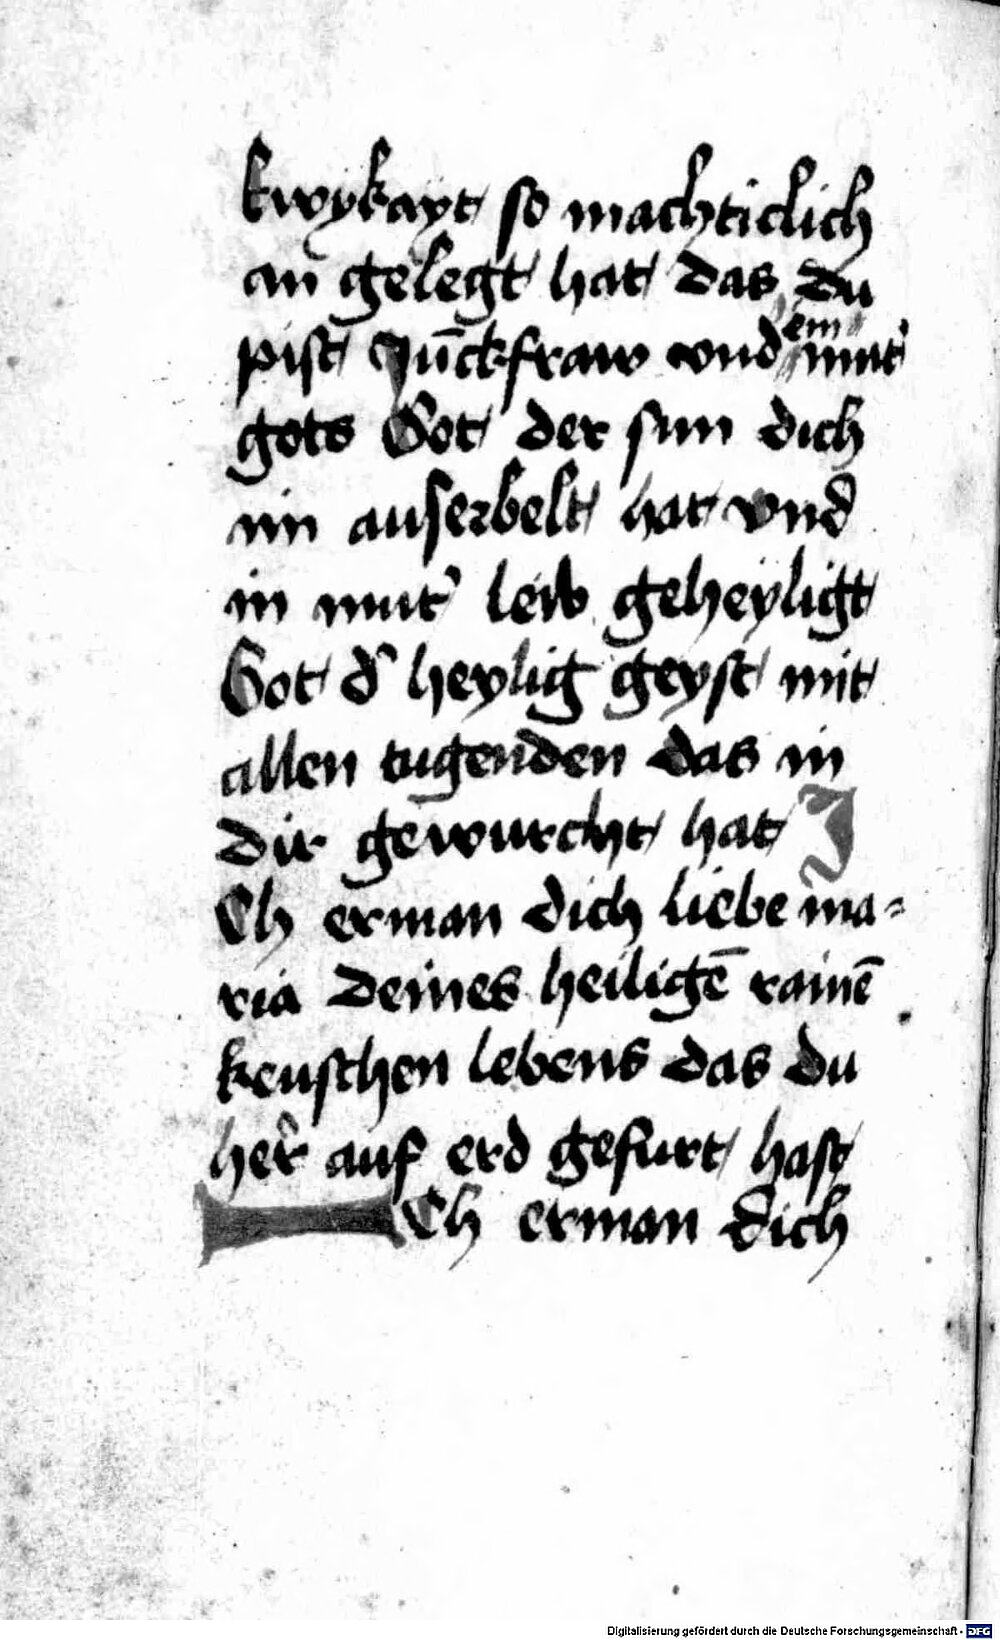 kwykayt so machticlich
an gelegt hat das du
pist Jūckfraw vnd ein mut̉
gots Got der sun dich
im auserbelt hat vnd
in mut̉ leib geheyligt
Got d̉ heylig geyst mit
allen tugenden das in
dir gewurcht hat J
Ch erman dich liebe ma=
ria deines heiligē rainē
keuschen lebens das du
her auf erd gefurt hast
ICh erman dich
Digitalisierung gefördert durch die Deutsche Forschungsgemeinschaft - DFG